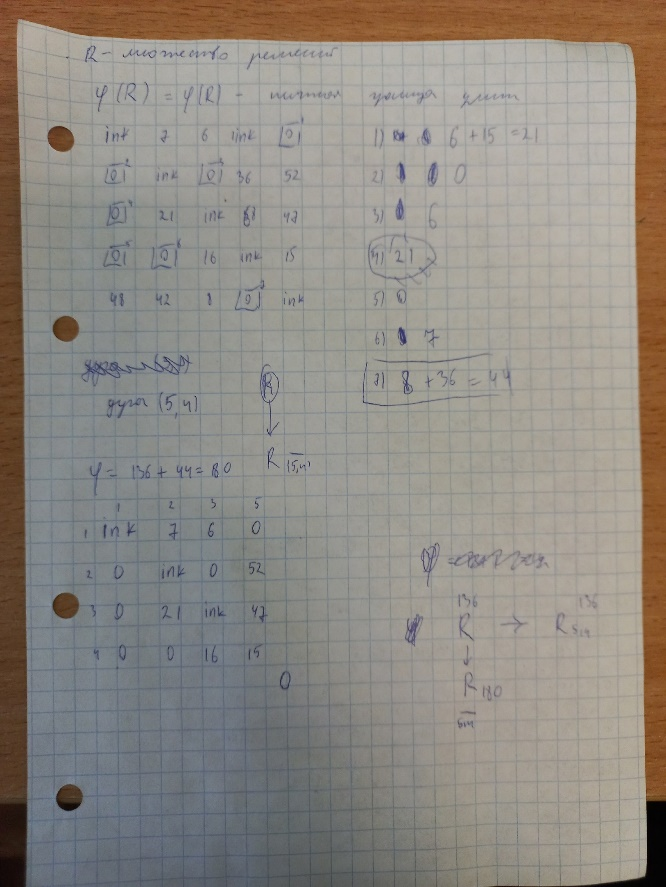 R - множество решений
φ(R) = φ(R) - нижняя граница
ink 7 6 ink 0¹
0² ink 0³ 36 52
0⁴ 21 ink 47
0⁵ 0⁶ 16 ink 15
48 42 8 0⁷ ink
1) 6 + 15 = 21
2) 0
3) 6
4) 21
5) 0
6) 7
7) 8 + 36 = 44
дуга (5,4)
R
R (5,4)
φ = 136 + 44 = 80
1 2 3 5
1 ink 7 6 0
2 0 ink 0 52
3 0 21 ink 47
4 0 0 16 15
0
136 136
R → R 5,4
R 180
5,4